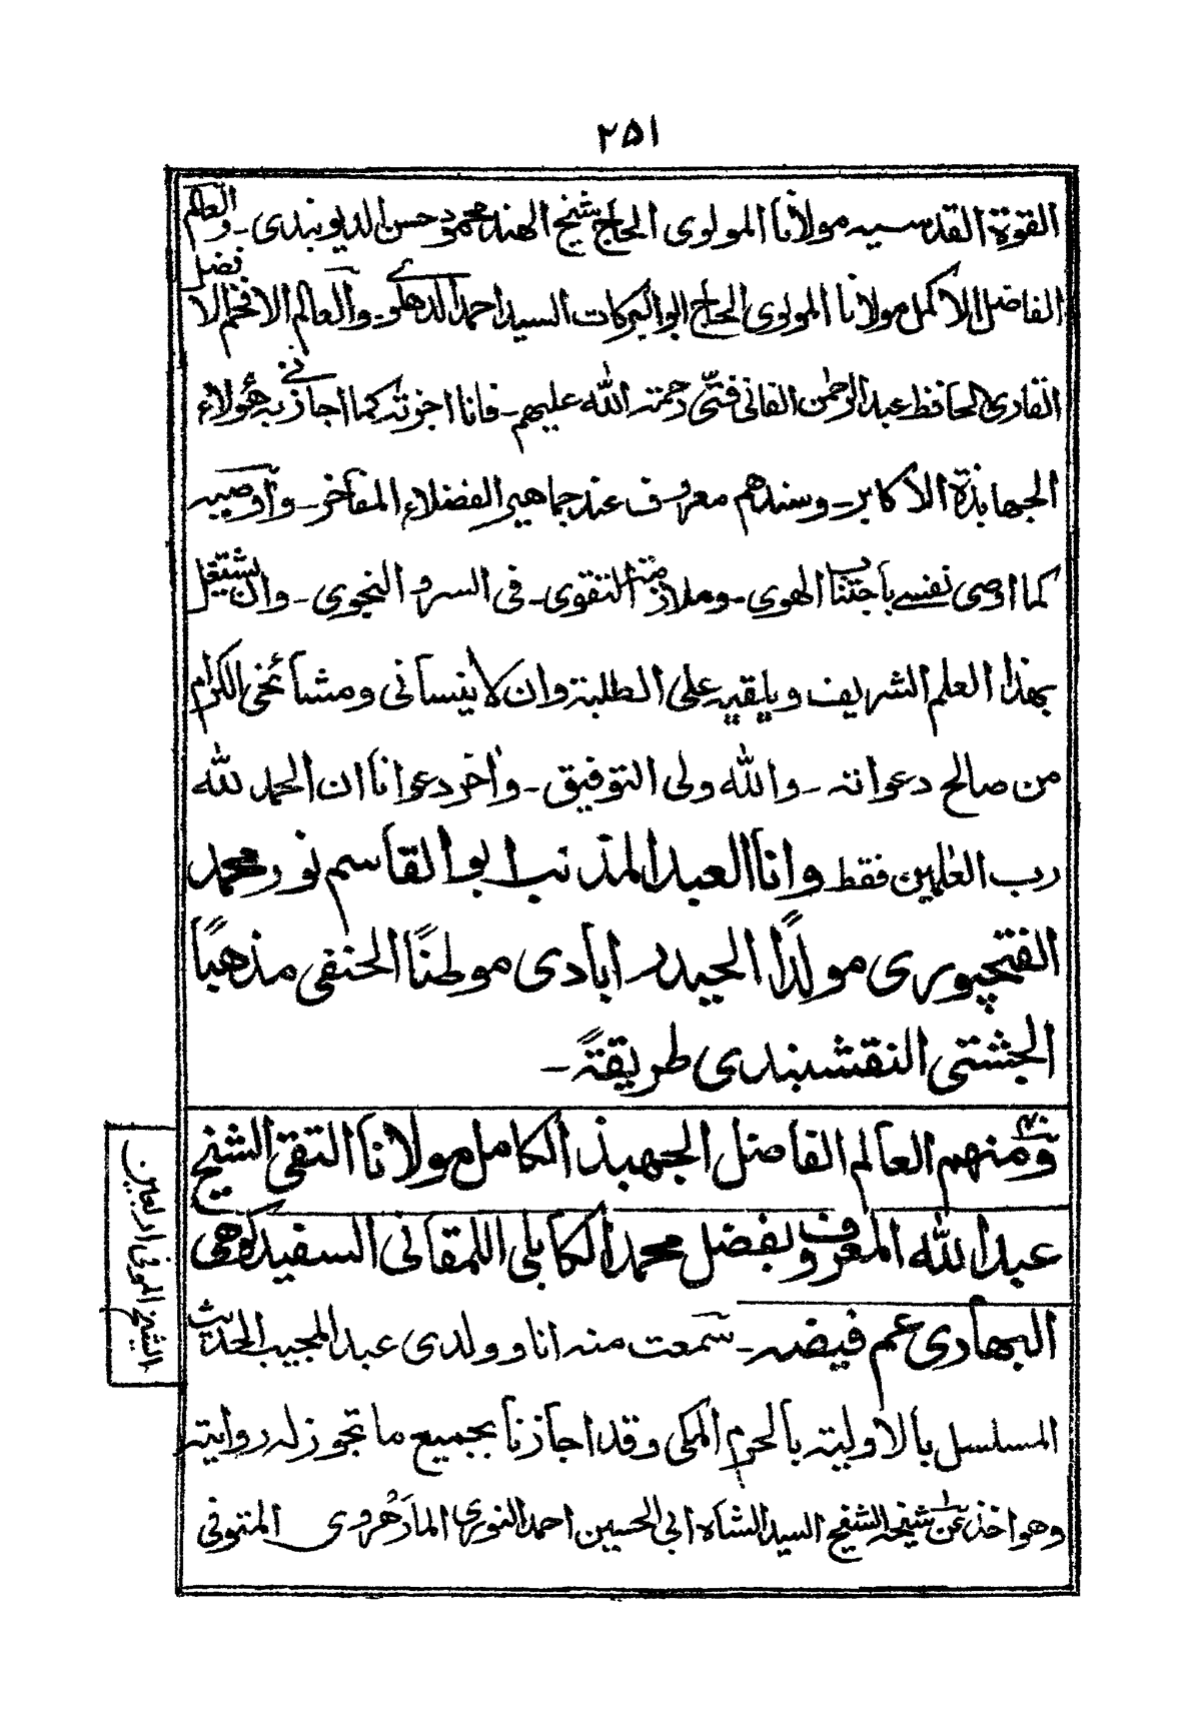 ۲۵۱
القوة القدسیه مولانا المولوی الحاج شیخ الهند محمود حسن الدیوبندی ـ والعالم
الفاضل الاکمل مولانا المولوی الحاج ابو البرکات السید احمد الدهلوی ـ والعالم الافخم الافضل
القاری الحافظ عبد الرحمن الفانی فتی رحمته الله علیهم ـ فانا اجزته کما اجازنی به هؤلاء
الجهابذة الاکابر ـ وسندهم معروف عند جماهیر الفضلاء المفاخر ـ واوصیه
کما اوصی نفسی باجتناب الهوی ـ وملازمته التقوی ـ فی السر و النجوی ـ وان یشتغل
بهذا العلم الشریف ویلقیه علی الطلبة وان لا ینسانی ومشائخی الکرام
من صالح دعواته ـ والله ولی التوفیق ـ واخر دعوانا ان الحمد لله
رب العلمین فقط وانا العبد المذنب ابو القاسم نور محمد
الفتحپوری مولدًا الحیدر ابادی موطنًا الحنفی مذهبًا
الجشتی النقشبندی طریقةً ـ
ومنهم العالم الفاضل الجهبذ الکامل مولانا التقی الشیخ
عبد الله المعروف بفضل محمد الکابلی اللمقانی السفید کوهی
البهادی عم فیضه ـ سمعت منه انا وولدی عبد المجیب الحدیث
المسلسل بالاولیته بالحرم المکی وقد اجازنا بجمیع ما تجوز له روایته
وهو اخذ عن شیخه الشفیخ السید الشاه ابی الحسین احمد النوری المارهروی المتوفی
الشیخ الموفی الاربعین